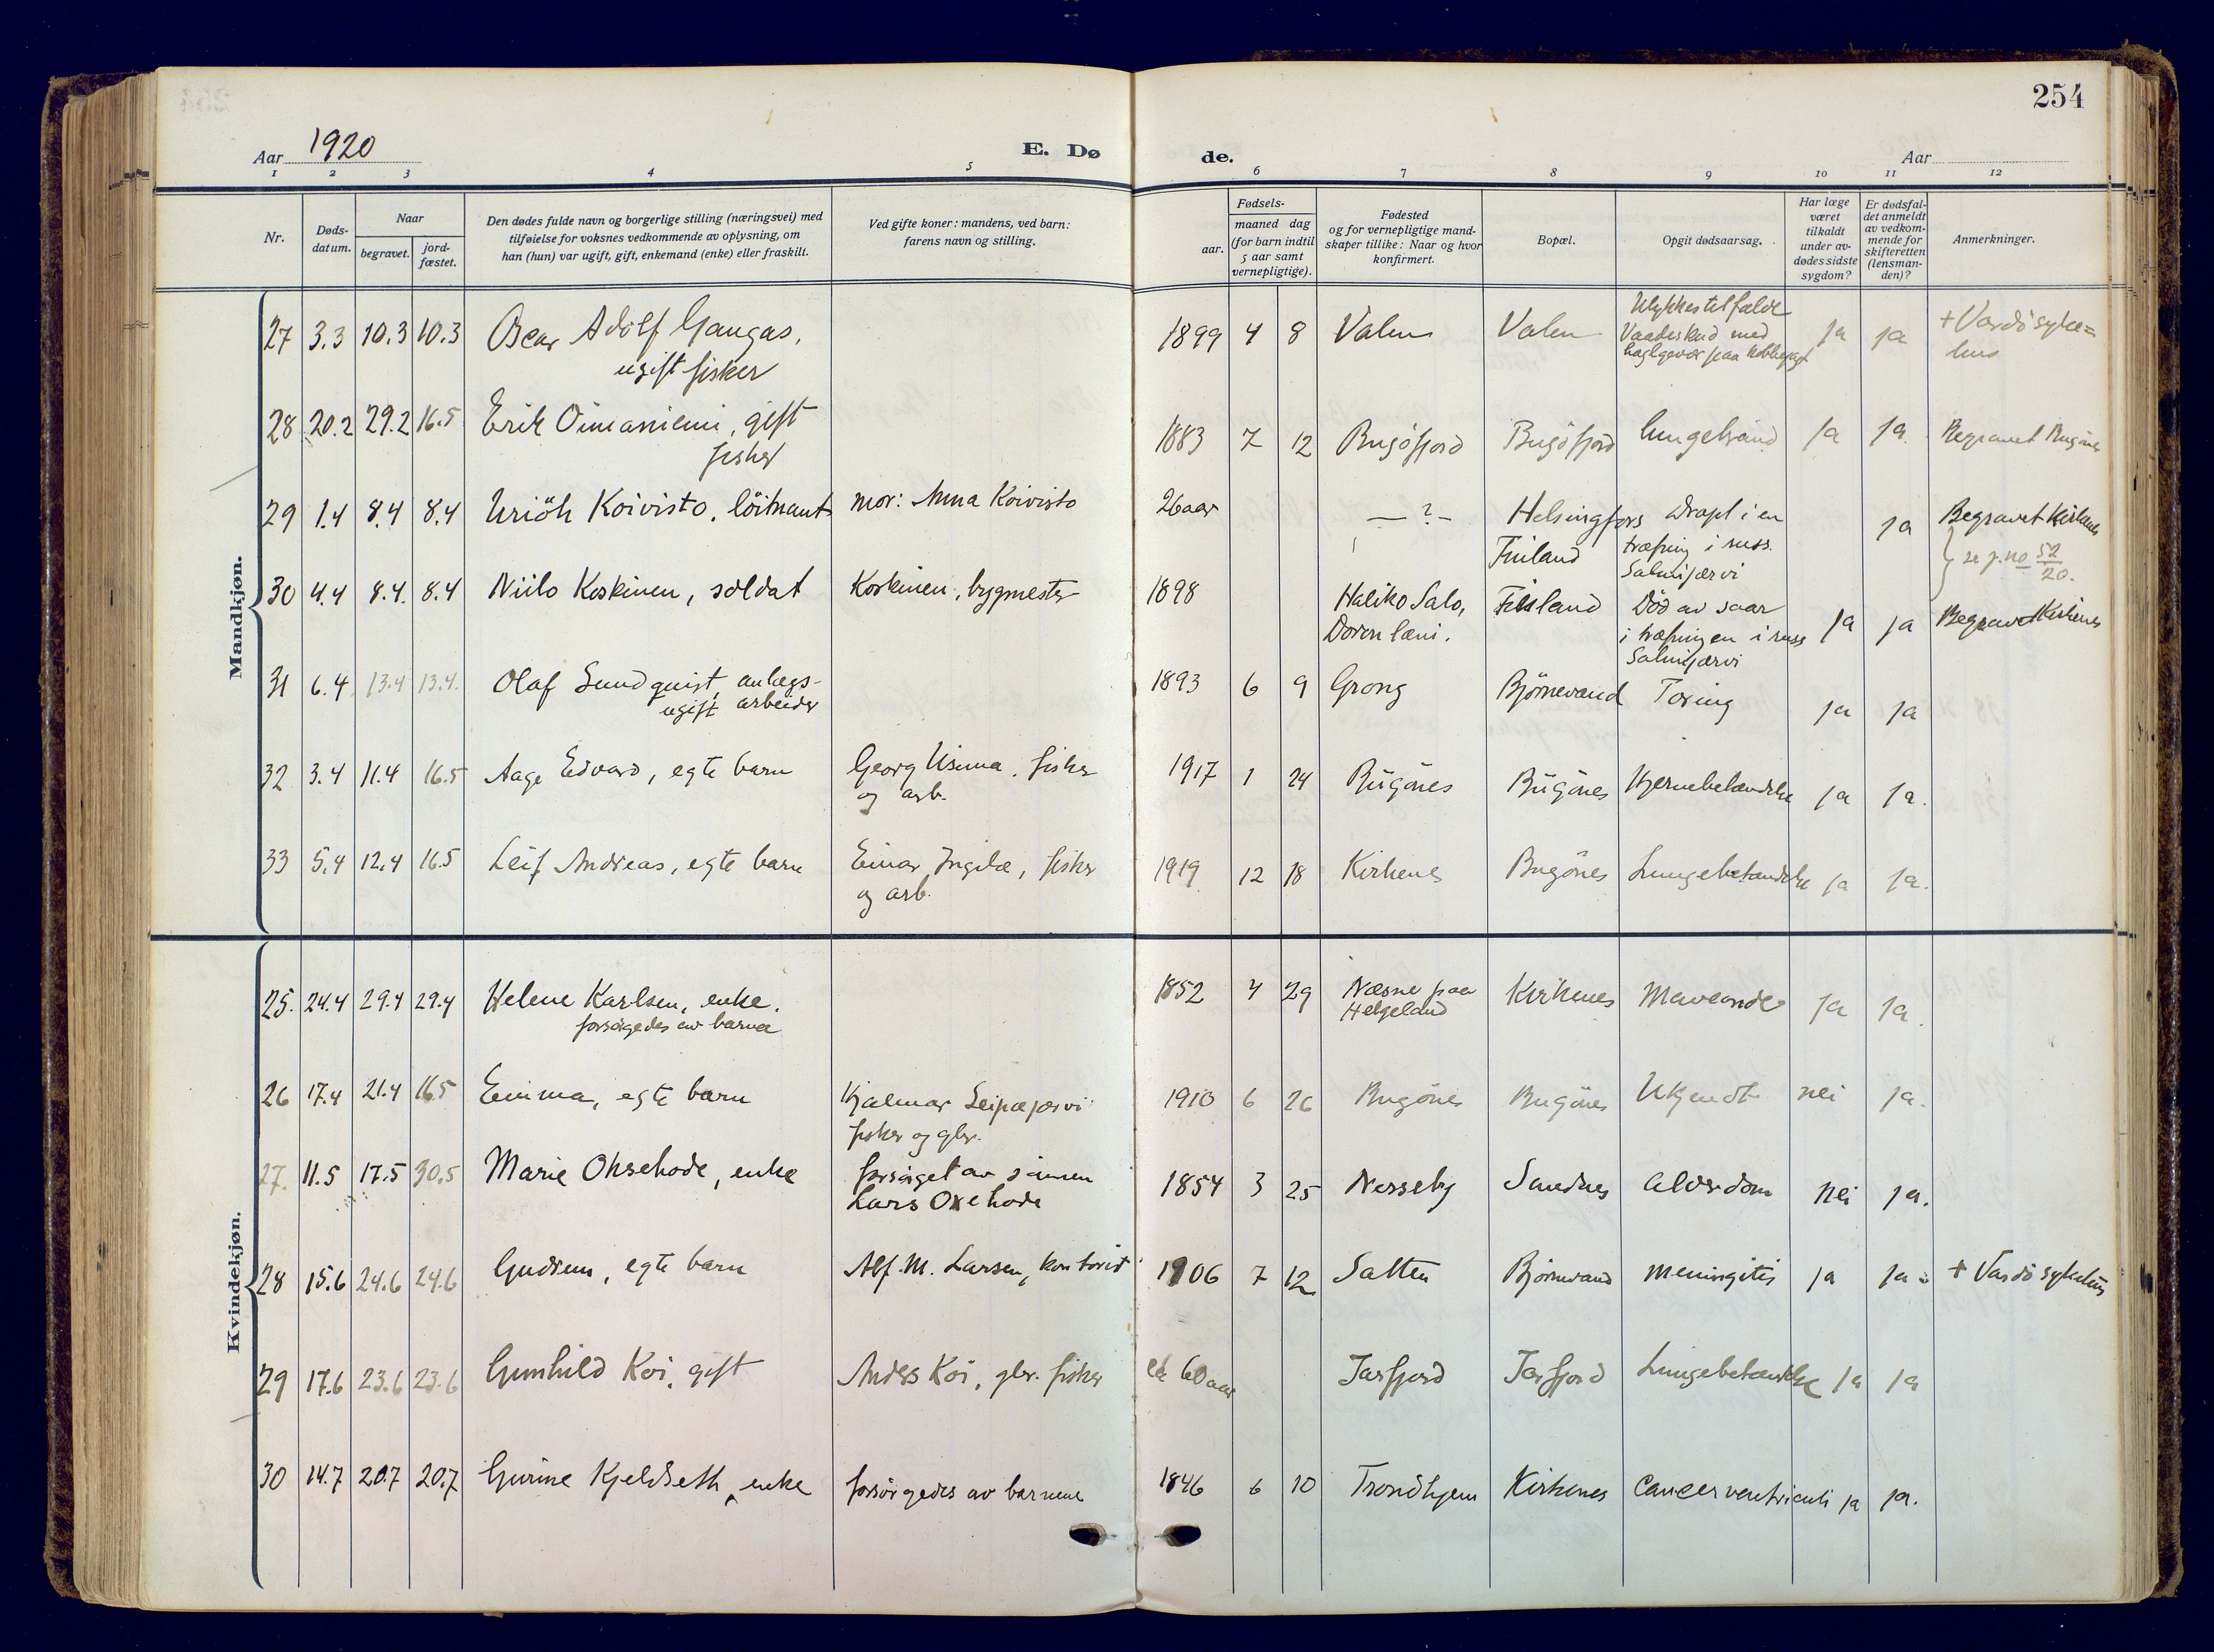 254
Aar 1920
E. Dø
de.
Aar
1 2 3 4 5 6 7 8 9 10 11 12
Nr.
Døds-
datum.
Naar
begravet.
jord-
fæstet.
Den dødes fulde navn og borgerlige stilling (næringsvei) med
tilføielse for voksnes vedkommende av oplysning, om
han (hun) var ugift, gift, enkemand (enke) eller fraskilt.
Ved gifte koner: mandens, ved barn:
farens navn og stilling.
Fødsels-
aar.
maaned dag
(for barn indtil
5 aar samt
vernepligtige).
Fødested
og for vernepligtige mand-
skaper tillike: Naar og hvor
konfirmert.
Bopæl.
Opgit dødsaarsag.
Har læge
været
tilkaldt
under av-
dødes sidste
sygdom?
Er dødsfal-
det anmeldt
av vedkom-
mende for
skifteretten
(lensman-
den)?
Anmerkninger.
Mandkjøn.
27 3.3 10.3 10.3 Oscar Adolf Gangas,
ugift fisker
1899 4 8 Valen Valen
Ulykkestilfælde
Vaadeskud med
haglgevær paa kobbejagt
ja ja
+ Vardö syke=
hus
28 20.2 29.2 16.5 Erik Oimaniemi, gift
fisker
1883 7 12 Bugöfjord Bugöfjord lungebrand ja ja. Begravet Bugönes
29 1.4 8.4 8.4 Uriöh Koivisto, löitnant mor: Anna Koivisto
26 aar — ? — Helsingfors
Finland
Dræpt i en
træfning i russ.
Salmijærvi
ja Begravet Kirkenes
se j.no 52/20.
30 4.4 8.4. 8.4 Niilo Koskinen, soldat Koskinen, bygmester
1898 Haliko Salo,
læni.
Finland
Död av saar
i træfningen i russ
Salmijærvi
ja ja Begravet Kirkenes
31 6.4 13.4 13.4. Olaf Sundquist, anlegs-
ugift arbeider
1893 6 9 Grong Björnevand Tæring ja ja
32 3.4 11.4 16.5 Aage Edvard, egte barn Georg Usima, fisker
og arb.
1917 1 24 Bugönes Bugönes Hjernebetændelse ja ja.
33 5.4 12.4 16.5 Leif Andreas, egte barn Einar Ingilæ, fisker
og arb.
1919 12 18 Kirkenes Bugönes Lungebetændelse ja ja.
Kvindekjøn.
25. 24.4 29.4 29.4 Helene Karlsen, enke.
forsörgedes av barna
1852 4 29 Næsne paa
Helgeland
Kirkenes Maveonde ja ja.
26 17.4 21.4 16.5 Emma, egte barn Hjalmar Leipæjærvi
fisker og gbr.
1910 6 26 Bugönes Bugönes Ukjendt nei ja.
27. 11.5 17.5 30.5 Marie Oksehode, enke forsörget av sönnen
Lars Oxehode
1854 3 25 Nesseby Sandnes alderdom nei ja.
28 15.6 24.6 24.6 Gudrun, egte barn Alf. M. Larsen, kontorist
1906 7 12 Salten Björnevand meningitis ja ja + Vardö sykehus
29 17.6 23.6 23.6 Gunhild Koi, gift Anders Koi, gbr. fisker
ca 60 aar Jarfjord Jarfjord Lungebetændelse ja ja
30 14.7 20.7 20.7 Gurine Kjeldseth, enke forsörgedes av barnene
1846 6 10 Trondhjem Kirkenes Cancer ventriculi ja ja.